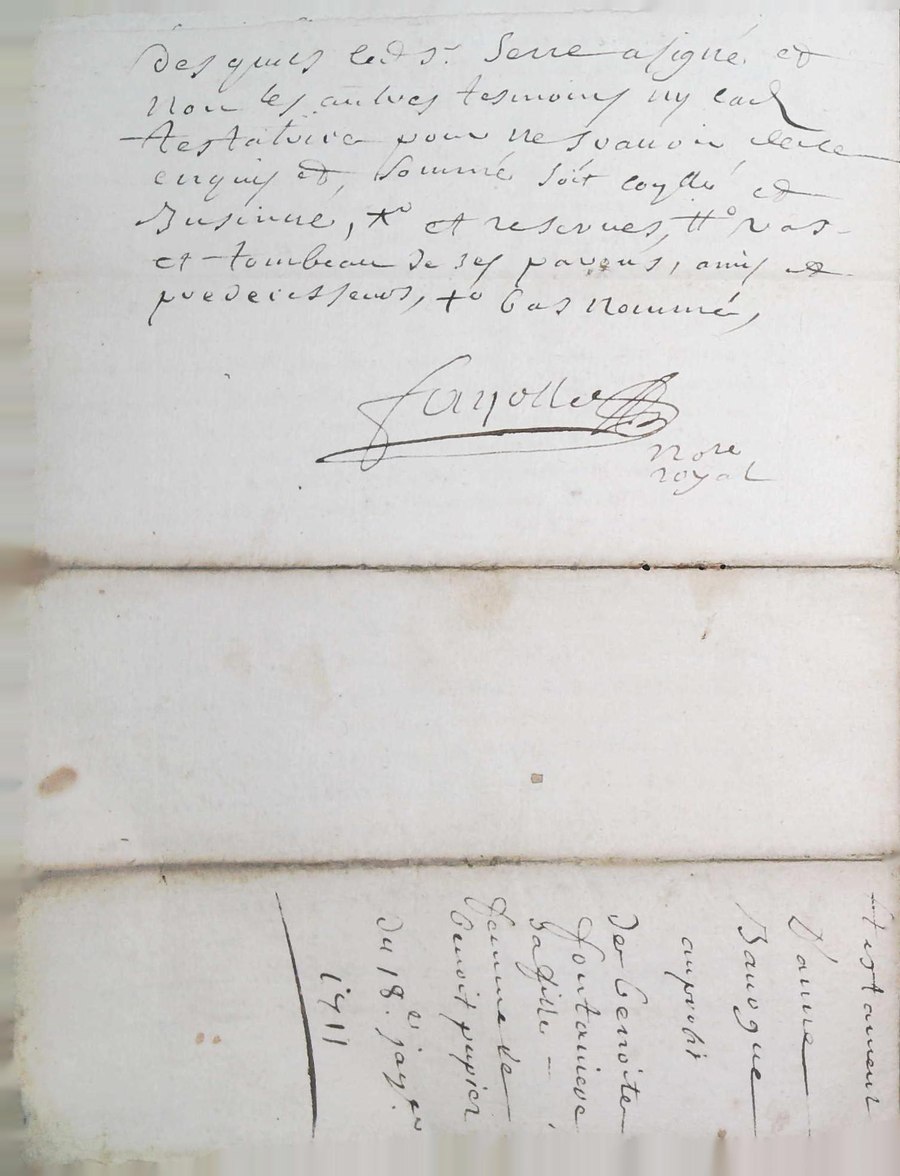 desquels led sr Serre a signé et
non les autres tesmoins ny lad
testatrice pour ne scavoir de ce
enquis et sommé soit coyllé et
Insinué, +o et reserves, ++o vas
et tombeau de ses parens, amis et
predecesseurs, +o bas nommé,
fayolle
nore
royal
testament
D'anne
Barogue
au profit
de benoite
fontanieve
femme de
benoit pupier
du 18e janer
1711